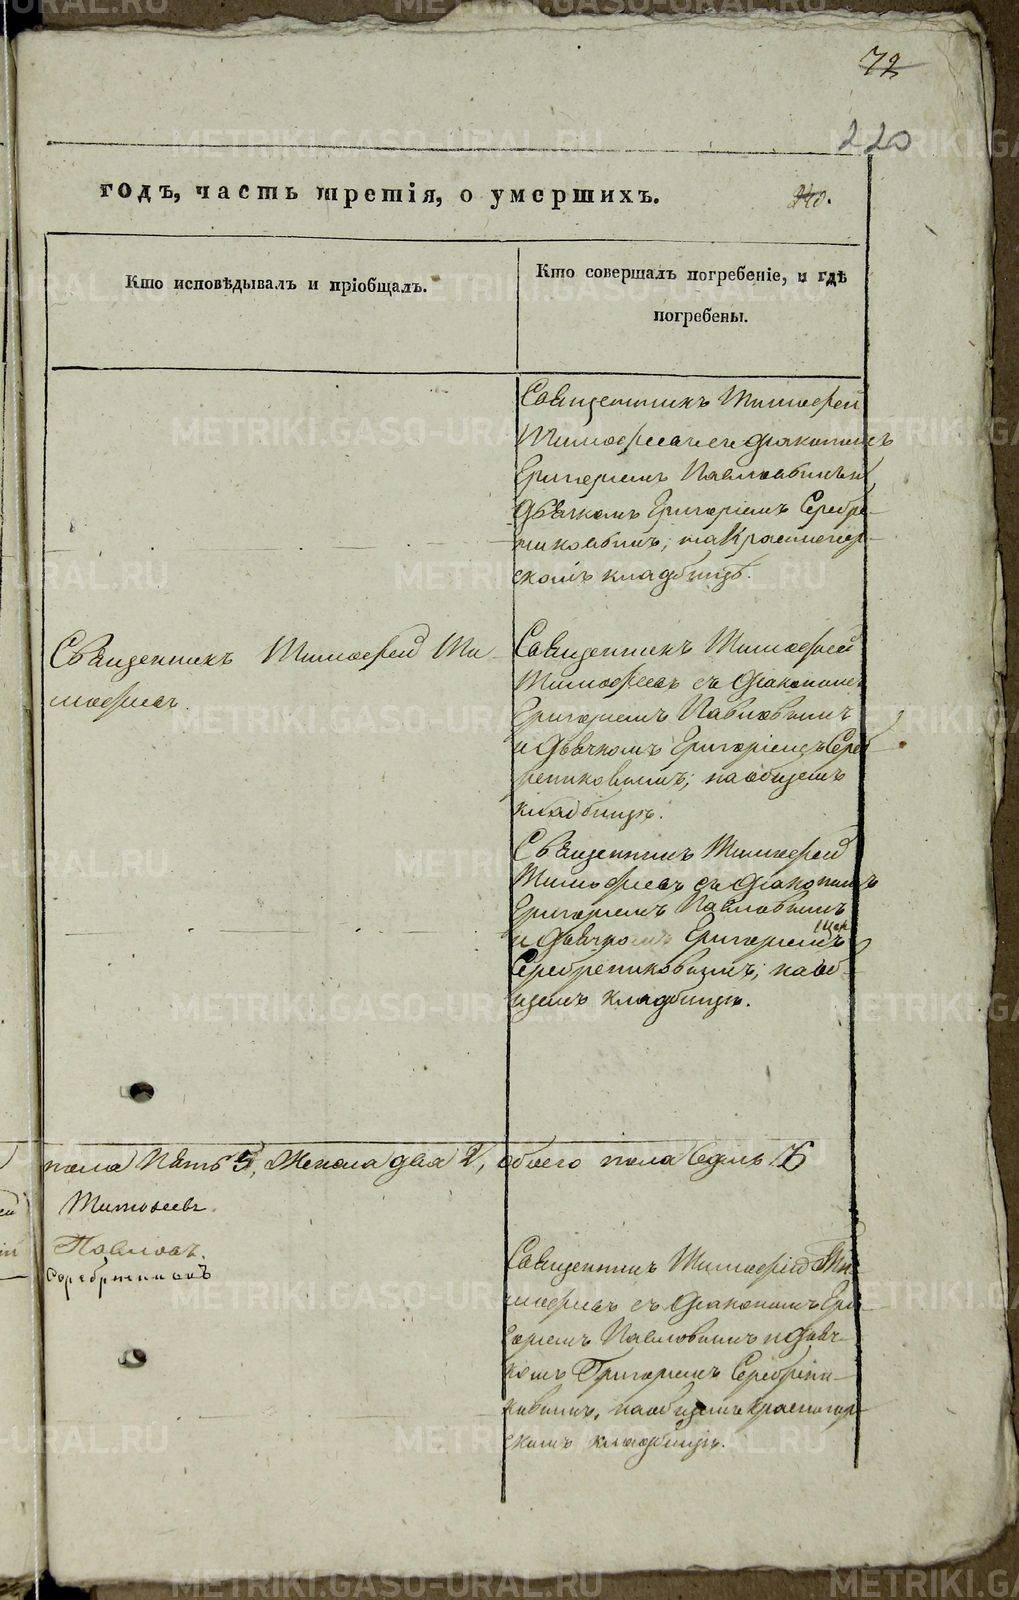 72
220
240.
годъ, часть третія, о умершихъ.
Кто исповѣдывалъ и пріобщалъ.
Кто совершалъ погребеніе, и гдѣ
погребены.
Священникъ Тимофей
Тимофеевъ съ діакономъ
Григоріемъ Павловымъ и
дьячкомъ Григоріемъ Серебре-
никовымъ, на Красногор-
скомъ кладбищѣ.
Священникъ Тимофей Ти-
мофеевъ.
Священникъ Тимофей
Тимофеевъ съ діакономъ
Григоріемъ Павловымъ
и дьячкомъ Григоріемъ Сереб-
рениковымъ; на общемъ
кладбищѣ.
Священникъ Тимофей
Тимофеевъ съ діакономъ
Григоріемъ Павловымъ
и дьячкомъ Григоріемъ
Серебрениковымъ; на об-
щемъ кладбищѣ.
пола пять 5, Женска два 2, обоего пола седмь 7
Тимофеевъ.
Павловъ.
Серебрениковъ
Священникъ Тимофей Ти-
мофеевъ съ діакономъ Гри-
горіемъ Павловымъ и дьяч-
комъ Григоріемъ Серебрени-
ковымъ, на общемъ Красногор-
скомъ кладбищѣ.
METRIKI.GASO-URAL.RU